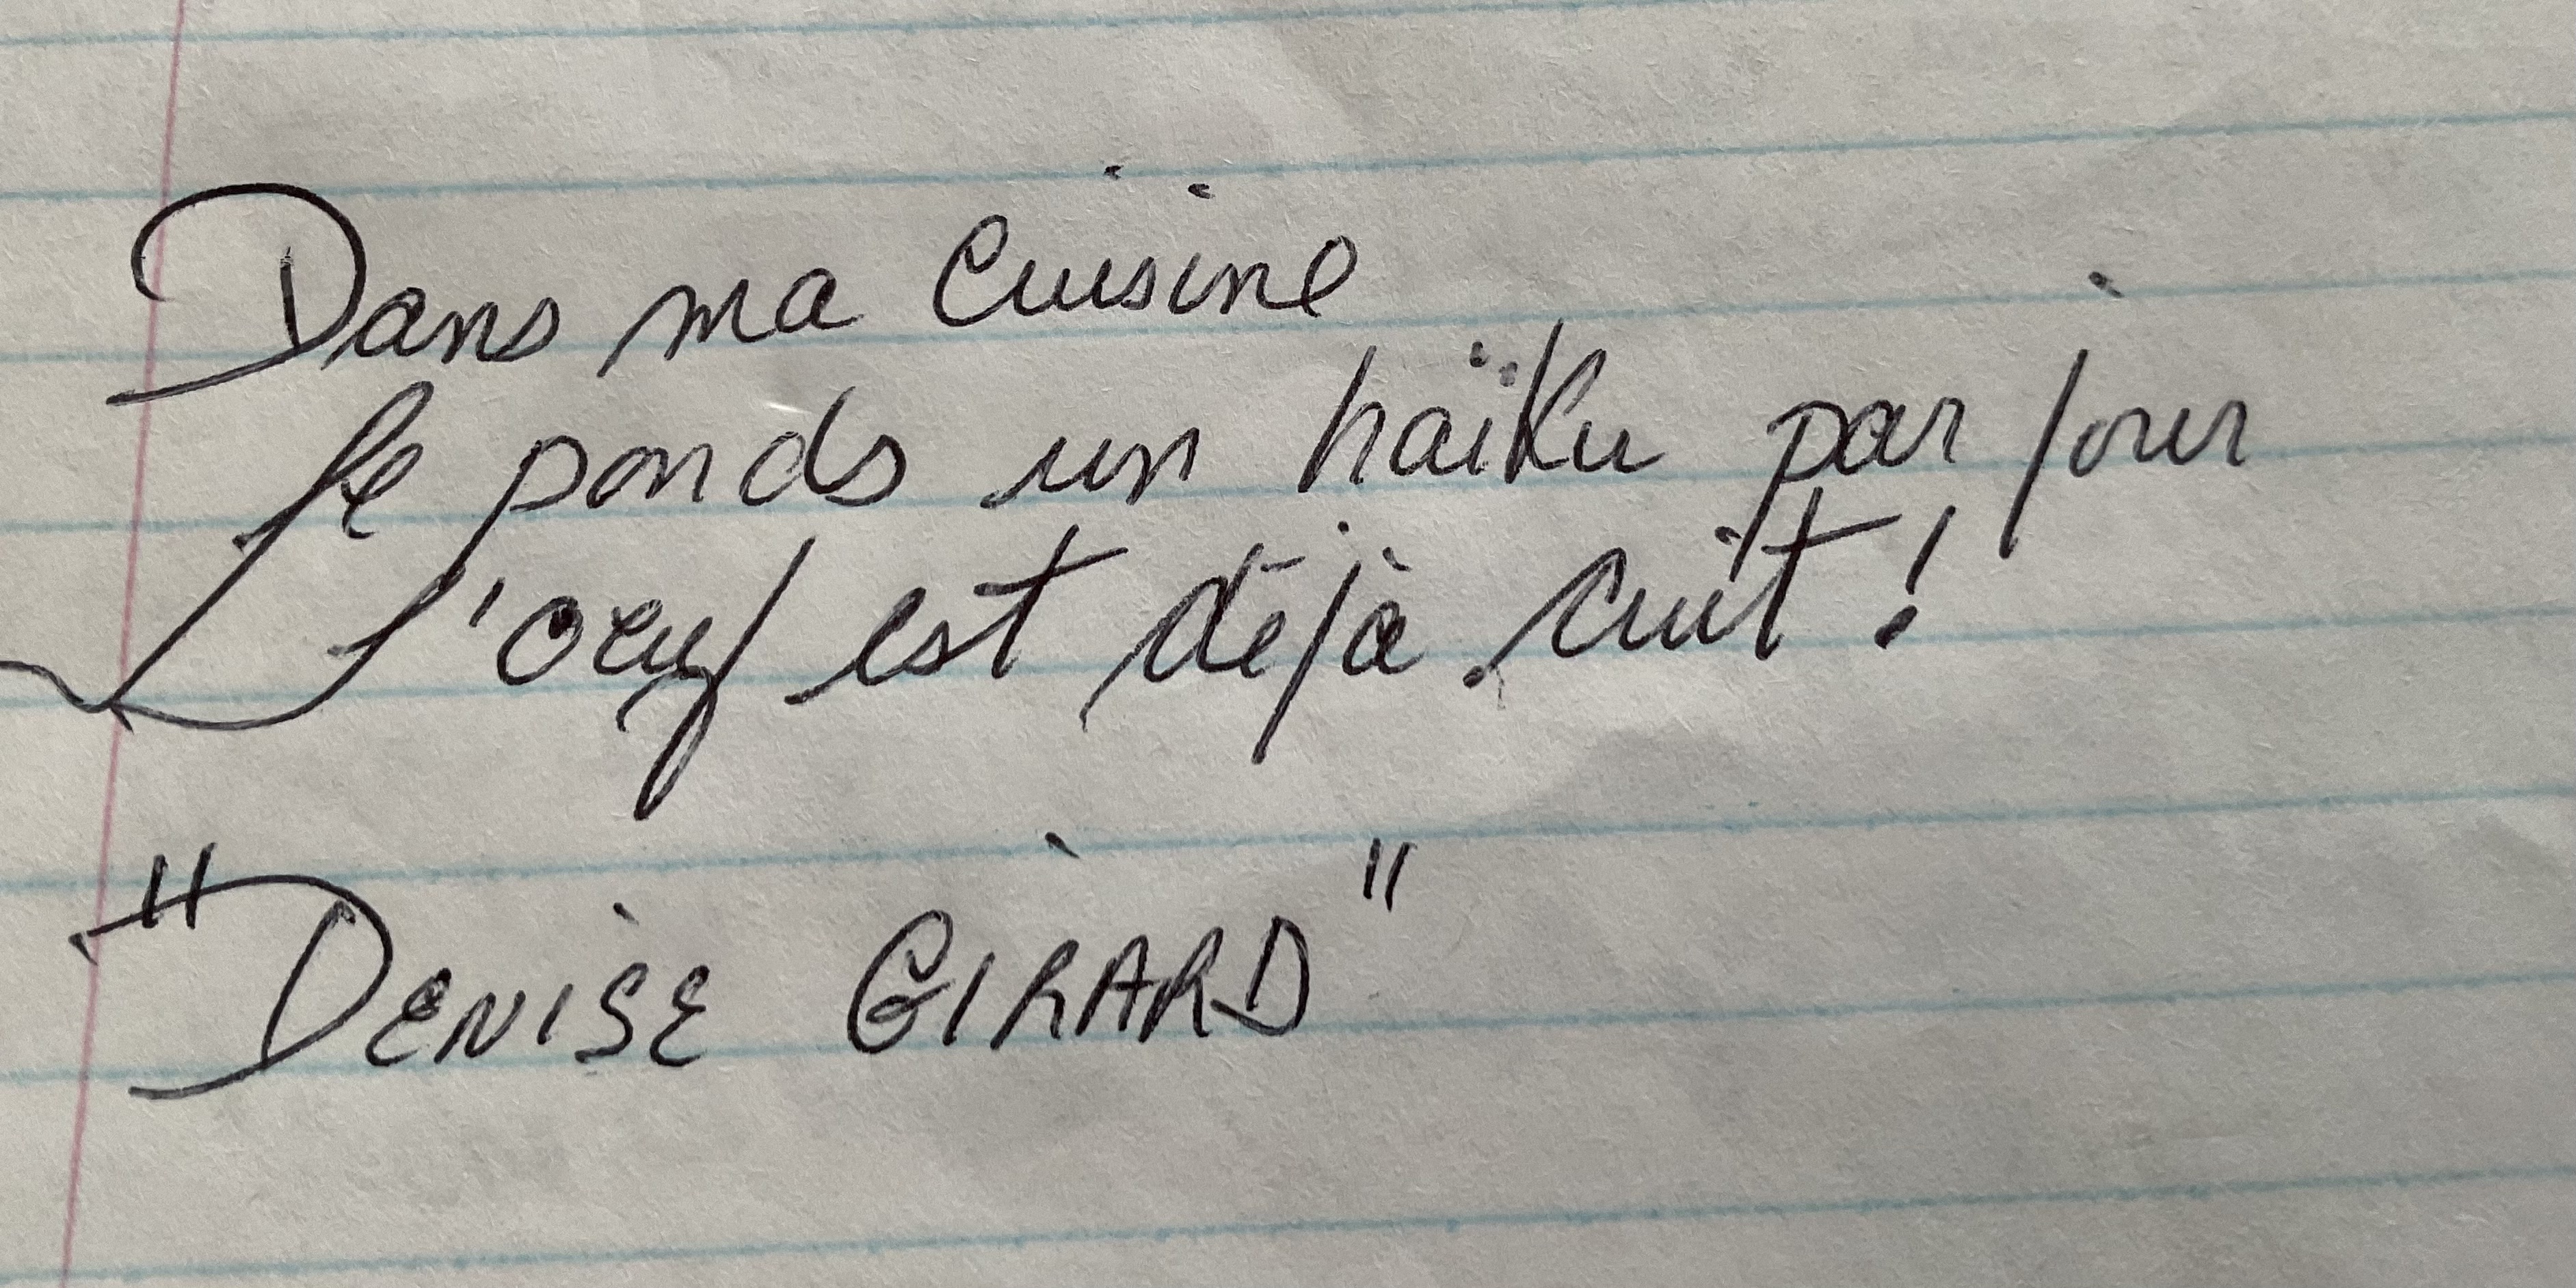 Dans ma cuisine
Je ponds un haïku par jour
L'oeuf est déjà cuit !
"DENISE GIRARD"